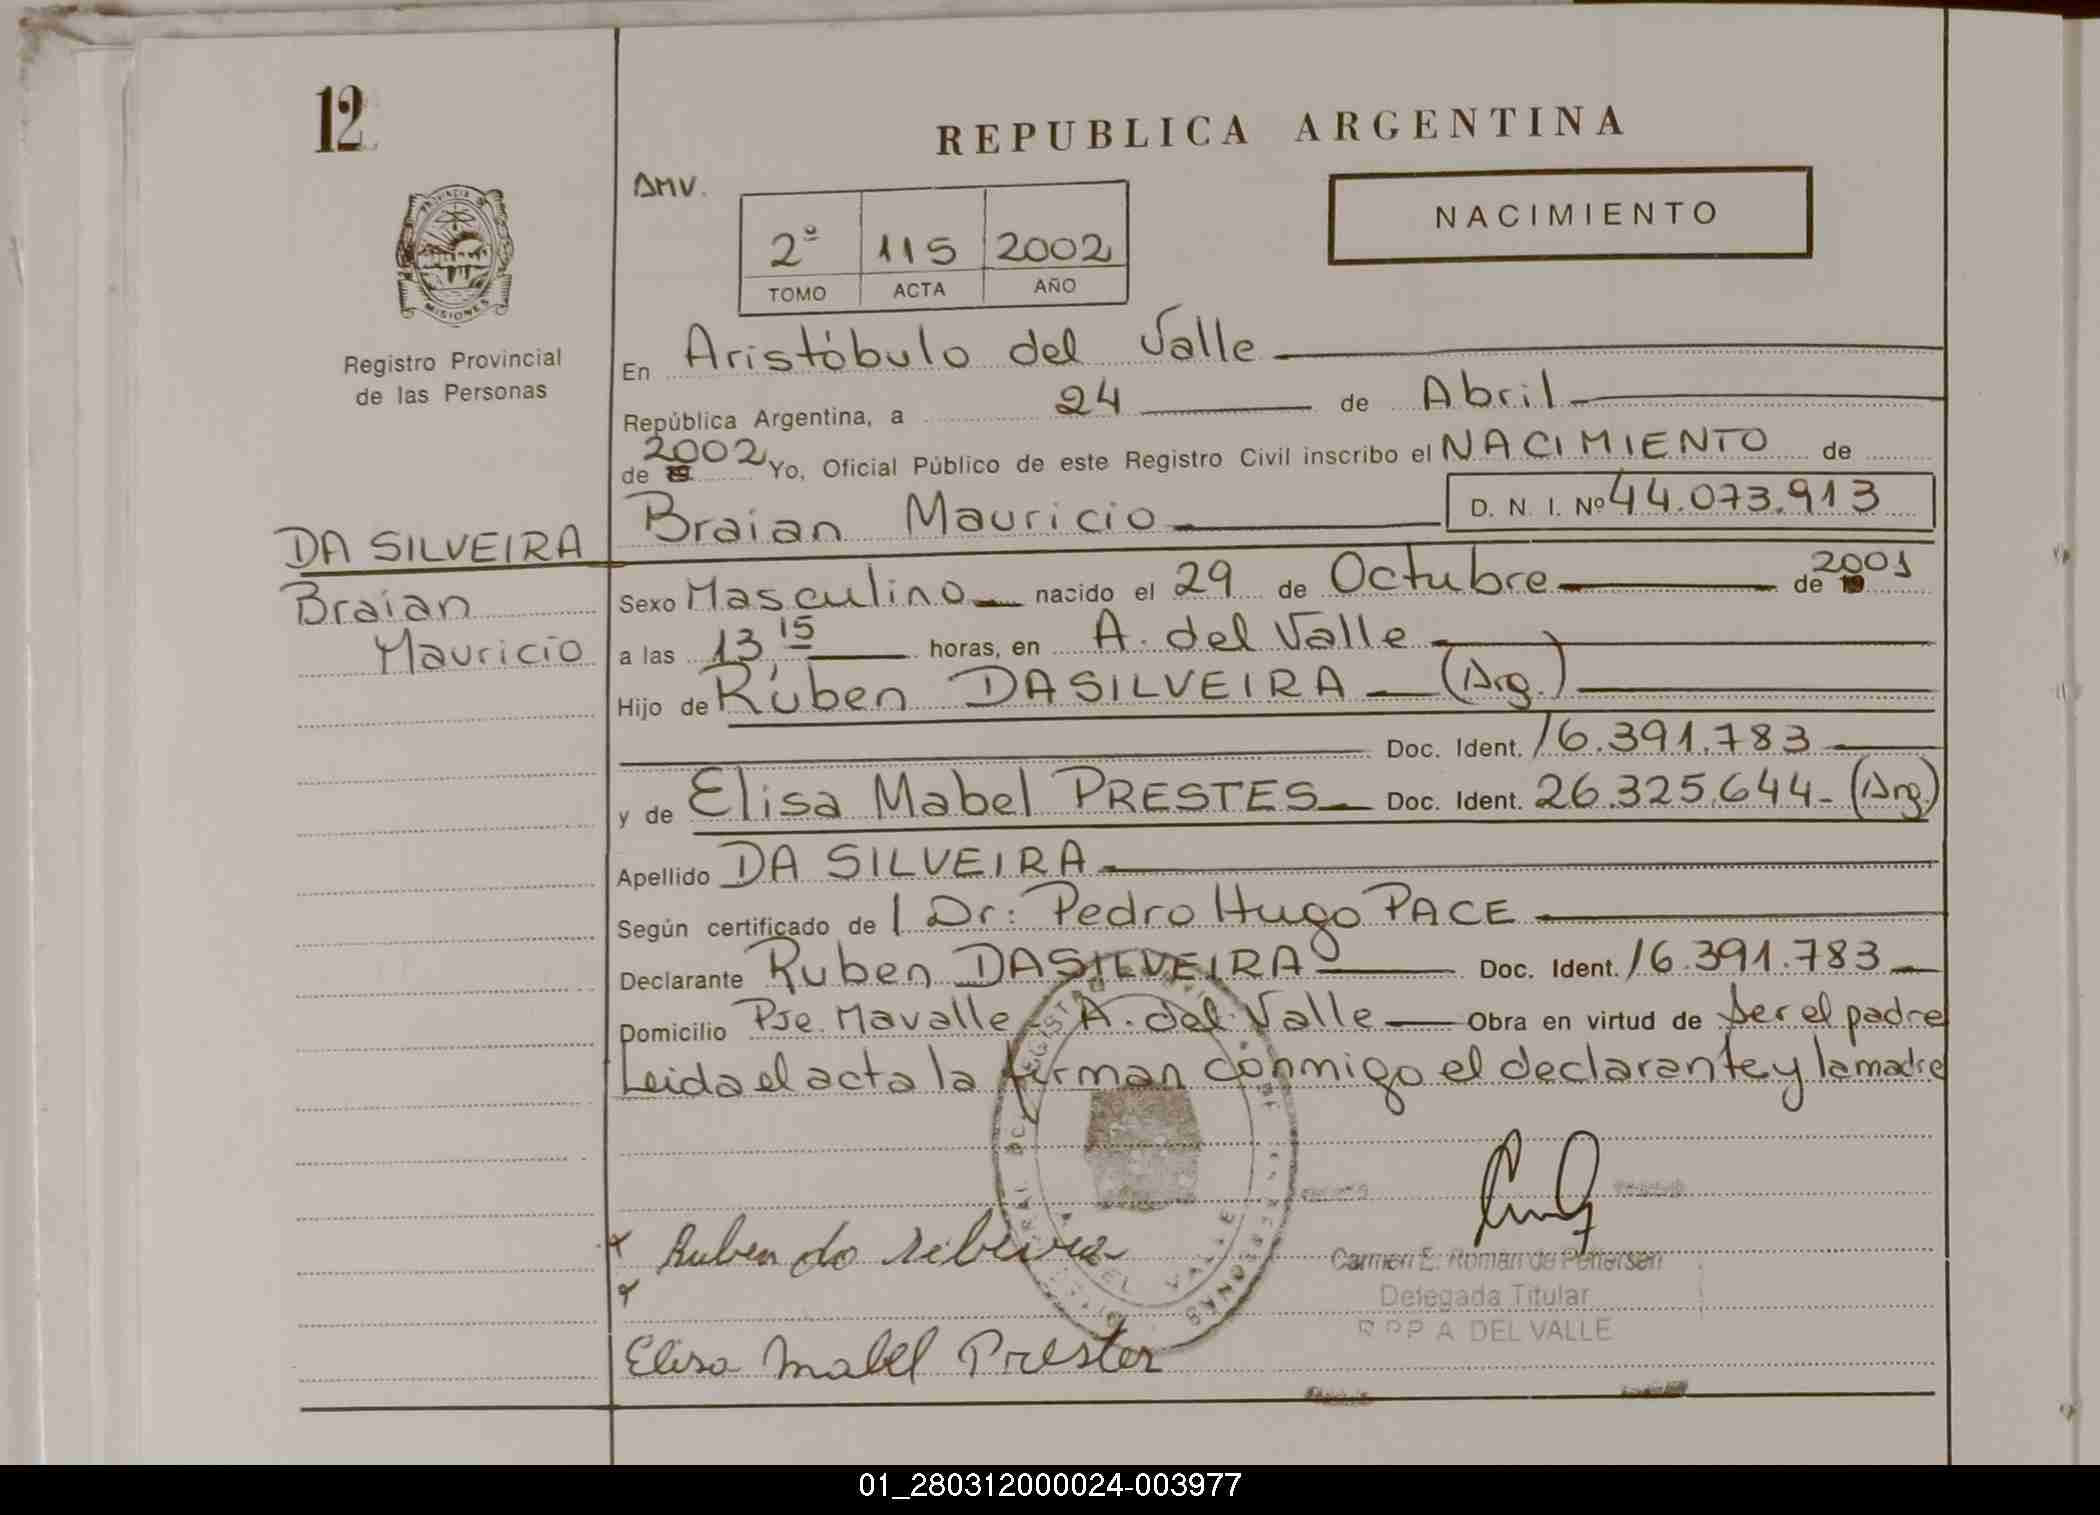 12
REPUBLICA ARGENTINA
AMV.
NACIMIENTO
2º 115 2002
TOMO ACTA AÑO
PROVINCIA DE
MISIONES
Registro Provincial
de las Personas
En Aristóbulo del Valle
República Argentina, a 24 de Abril
de 2002 Yo, Oficial Público de este Registro Civil inscribo el NACIMIENTO de
Braian Mauricio D. N. I. Nº 44.073.913
DA SILVEIRA
Braian
Mauricio
Sexo Masculino nacido el 29 de Octubre de 19 2001
a las 13 15 horas, en A. del Valle
Hijo de Rúben DASILVEIRA (Arg.)
Doc. Ident. 16.391.783
y de Elisa Mabel PRESTES Doc. Ident. 26.325.644- (Arg.)
Apellido DA SILVEIRA
Según certificado de Dr: Pedro Hugo PACE
Declarante Ruben DASILVEIRA Doc. Ident. 16.391.783
Domicilio Pje. Mavalle - A. del Valle Obra en virtud de ser el padre
Leida el acta la firman conmigo el declarante y la madre
Ruben da
Elisa Mabel Prestes
Carmen E. Roman de Pettersen
Delegada Titular
R.P.P. A DEL VALLE
01_280312000024-003977